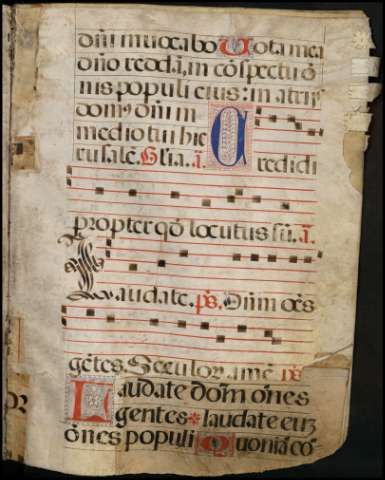 dñi inuocabo Uota mea
dño reddā, in cōspectu ō
nis populi eius: in atriis
domꝰ dñi in
medio tui hie
rusalē. Gl̃ia. ā. Credidi
propter qđ locutus sũ. ā.
Laudate. ps. Dñm oẽs
gẽtes. Seculor. amẽ. ps
Laudate dom̃ ones
gentes * laudate eũ
õnes populi Quoniã cõ